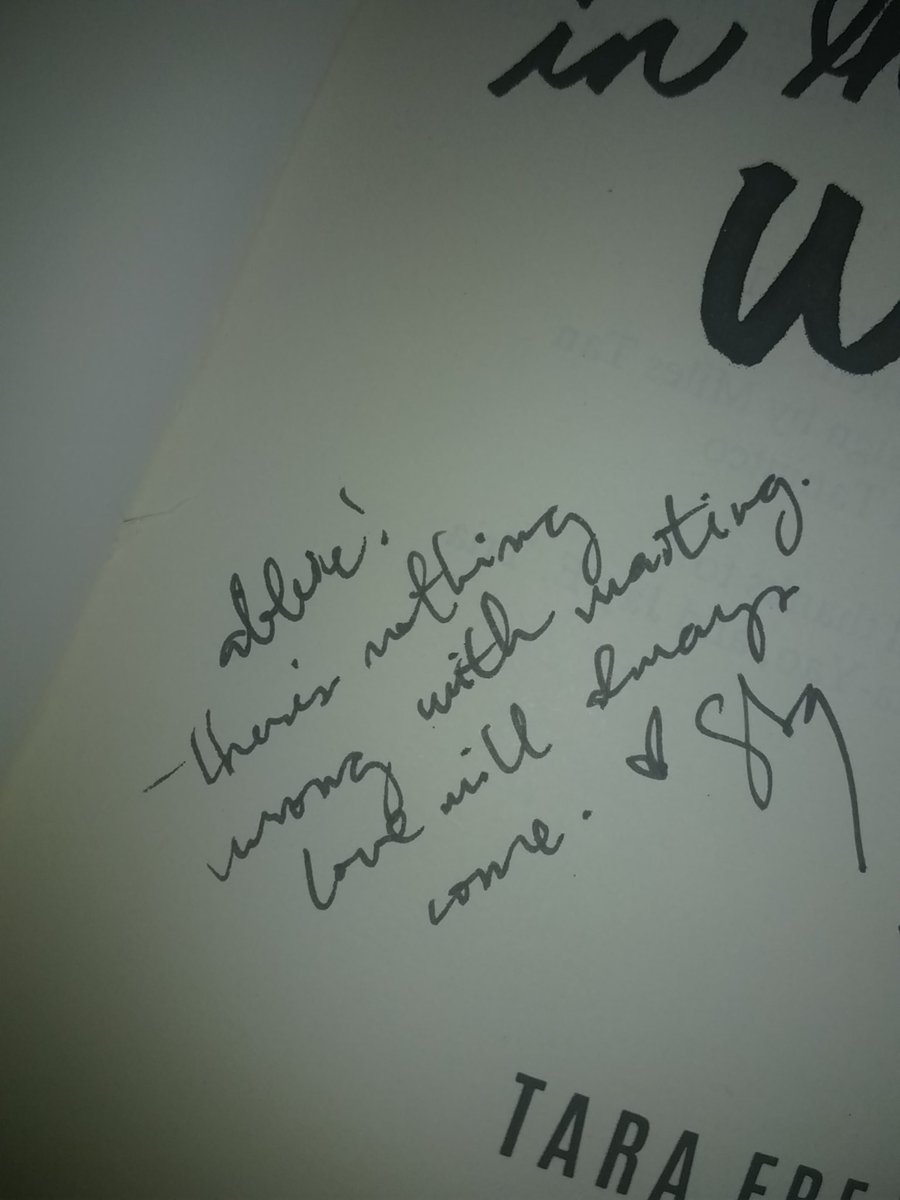 in th
W
there's nothing
wrong with waiting.
love will always
come.
TARA FRE